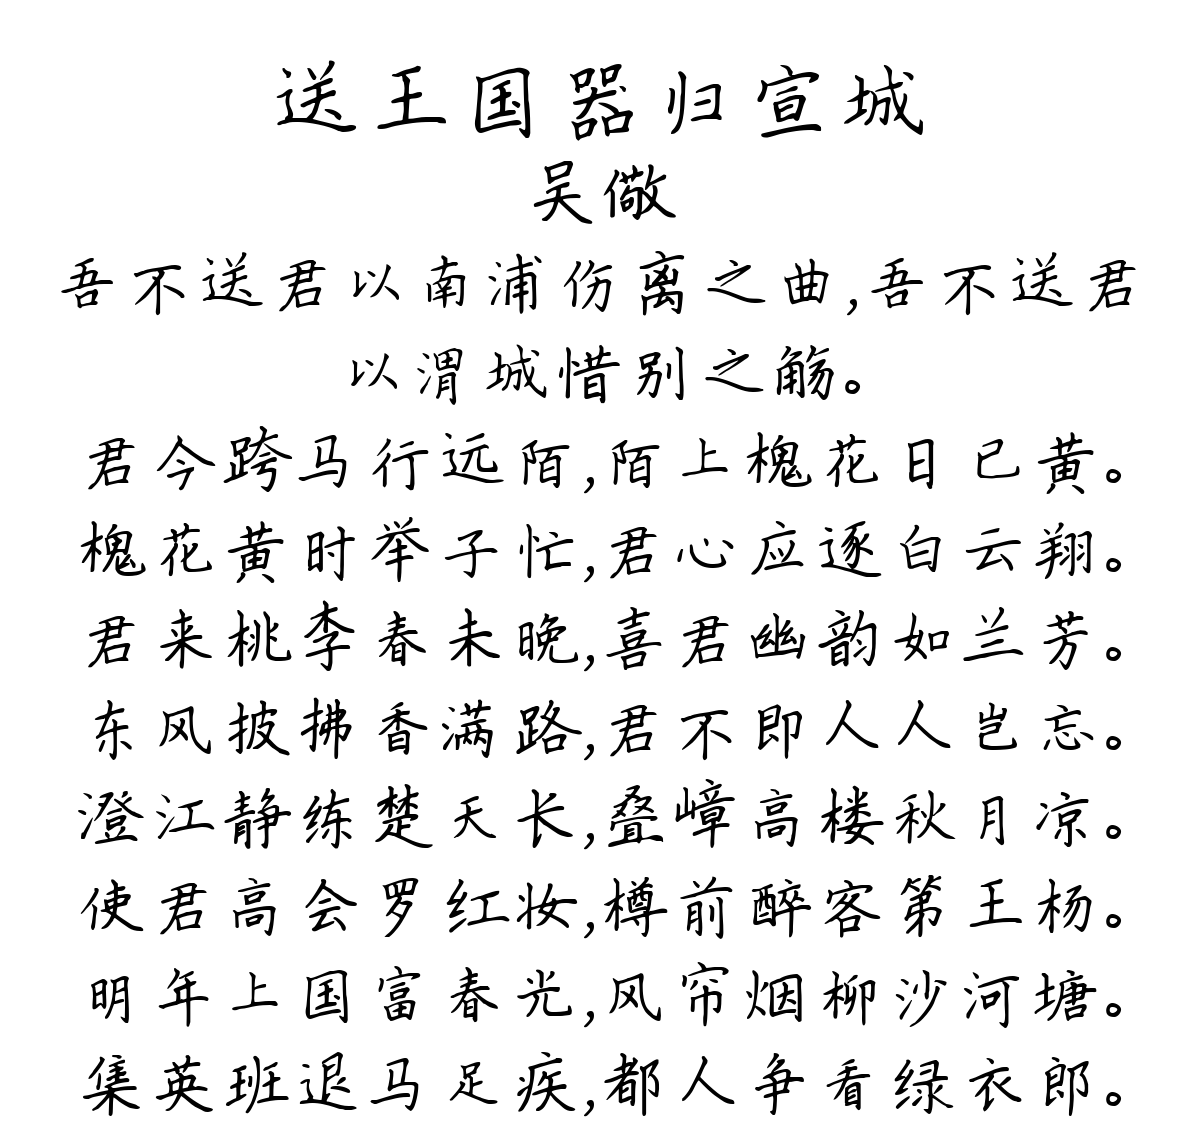 送王国器归宣城
吴儆
吾不送君以南浦伤离之曲,吾不送君
以渭城惜别之觞。
君今跨马行远陌,陌上槐花日已黄。
槐花黄时举子忙,君心应逐白云翔。
君来桃李春未晚,喜君幽韵如兰芳。
东风披拂香满路,君不即人人岂忘。
澄江静练楚天长,叠嶂高楼秋月凉。
使君高会罗红妆,樽前醉客第王杨。
明年上国富春光,风帘烟柳沙河塘。
集英班退马足疾,都人争看绿衣郎。